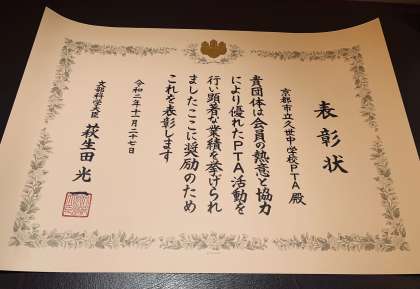 表彰状
京都市立久世中学校PTA殿
貴団体は会員の熱意と協力
により優れたPTA活動を
行い顕著な業績を挙げられ
ましたここに奨励のため
これを表彰します
令和二年十一月二十七日
文部科学大臣 萩生田光一